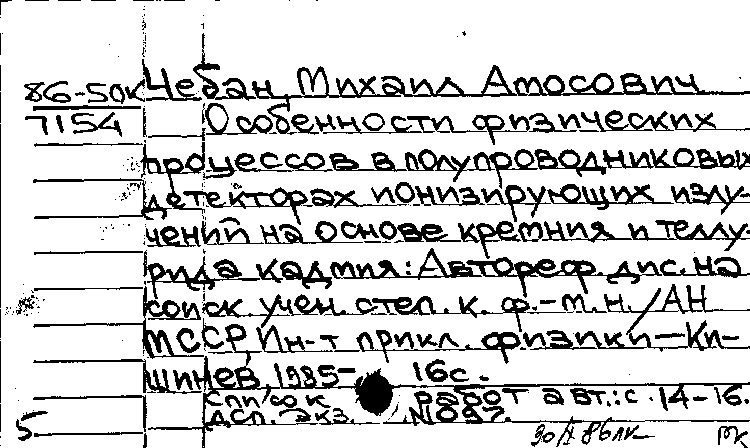 86-50к Чебан, Михаил Амосович
7154 Особенности физических
процессов в полупроводниковых
детекторах ионизирующих излу-
чений на основе кремния и теллу-
рида кадмия: Автореф. дис. на
соиск. учен. степ. к. ф.-м. н. / АН
МССР, Ин-т прикл. физики. — Ки-
шинев, 1985- 16с.
Список работ авт.: с. 14-16.
ДСП. Экз. N 097.
5